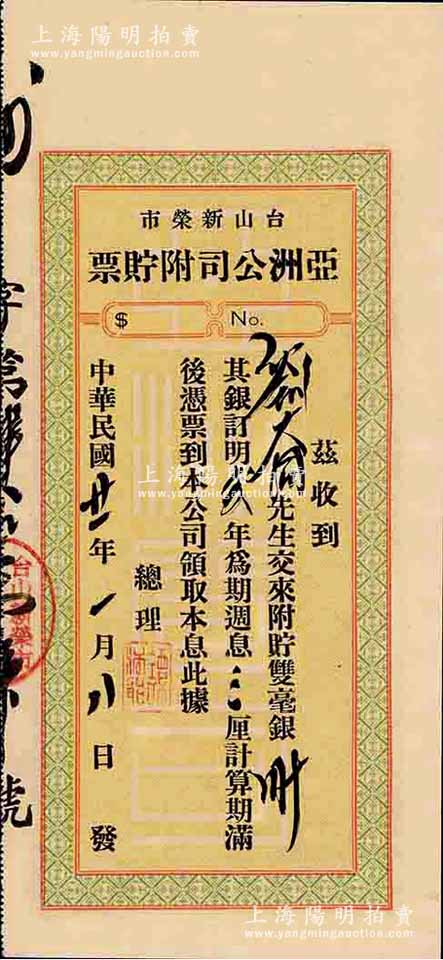 上海陽明拍賣
www.yangmingauction.com
市榮新山台
票貯附司公洲亞
$ No.
茲收到
劉 先生交來附貯雙毫銀
其銀訂明 年爲期週息 厘計算期滿
後憑票到本公司領取本息此據
總理
中華民國廿一年一月八日發
字第 號
上海陽明拍賣
www.yangmingauction.com
上海陽明拍賣
www.yangmingauction.com